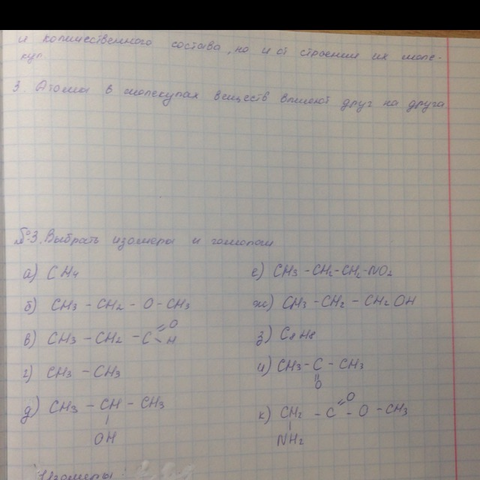 и количественного состава, но и от строения их моле-
кул.
3. Атомы в молекулах веществ влияют друг на друга
№3. Выбрать изомеры и гомологи
а) CH4
б) CH3 – CH2 – O – CH3
в) CH3 – CH2 – C O H
г) CH3 – CH3
д) CH3 – CH – CH3
OH
е) CH3 – CH2 – CH2 – NO2
ж) CH3 – CH2 – CH2OH
з)
и) CH3 – C – CH3
O
к) CH2 – C O – O – CH3
NH2
Изомеры: